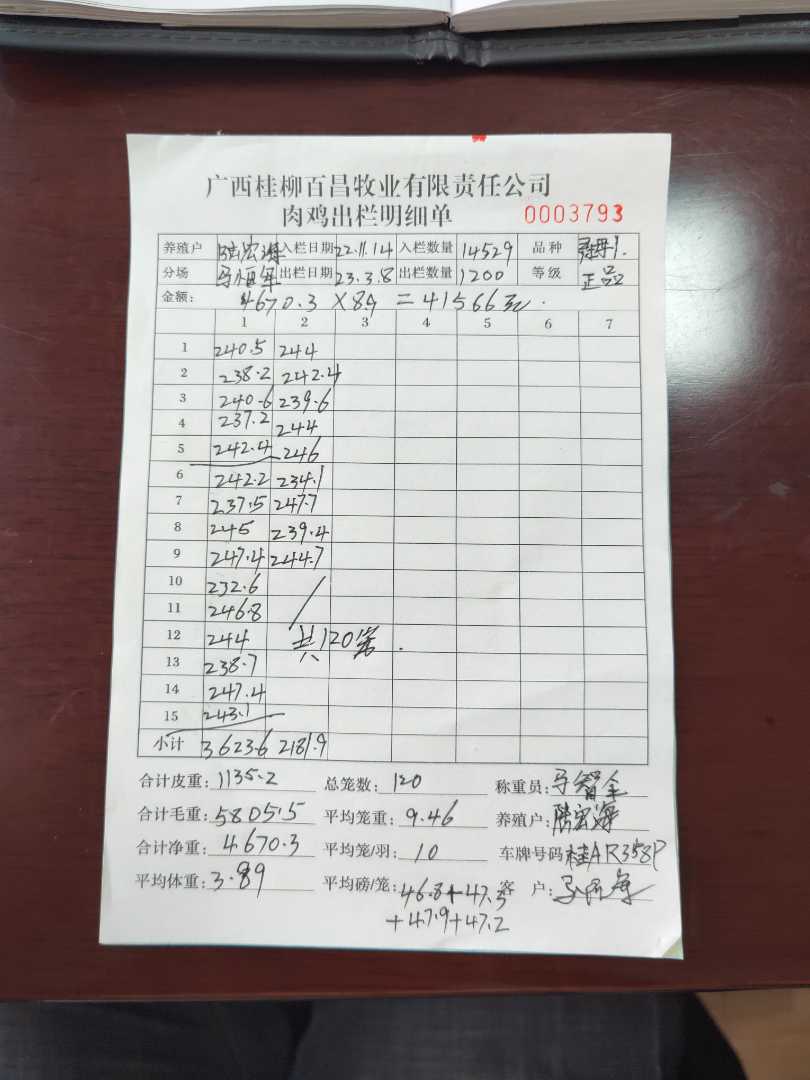 广西桂柳百昌牧业有限责任公司
肉鸡出栏明细单 0003793
养殖户 陆宏海 入栏日期 22.11.14 入栏数量 14529 品种
分场 出栏日期 23.3.8 出栏数量 1200 等级 正品
金额: 4670.3 × 89 = 41566元.
1 2 3 4 5 6 7
1 240.5 244
2 238.2 242.4
3 240.6 239.6
4 237.2 244
5 242.4 246
6 242.2 234.1
7 237.5 247.7
8 245 239.4
9 247.4 244.7
10 232.6
11 246.8
12 244 共120笼.
13 238.7
14 247.4
15 243.1
小计 3623.6 2181.9
合计皮重: 1135.2 总笼数: 120 称重员: 马智全
合计毛重: 5805.5 平均笼重: 9.46 养殖户: 陆宏海
合计净重: 4670.3 平均笼/羽: 10 车牌号码 桂AR358P
平均体重: 3.89 平均磅/笼: 46.8+47.3 客 户:
+47.9+47.2